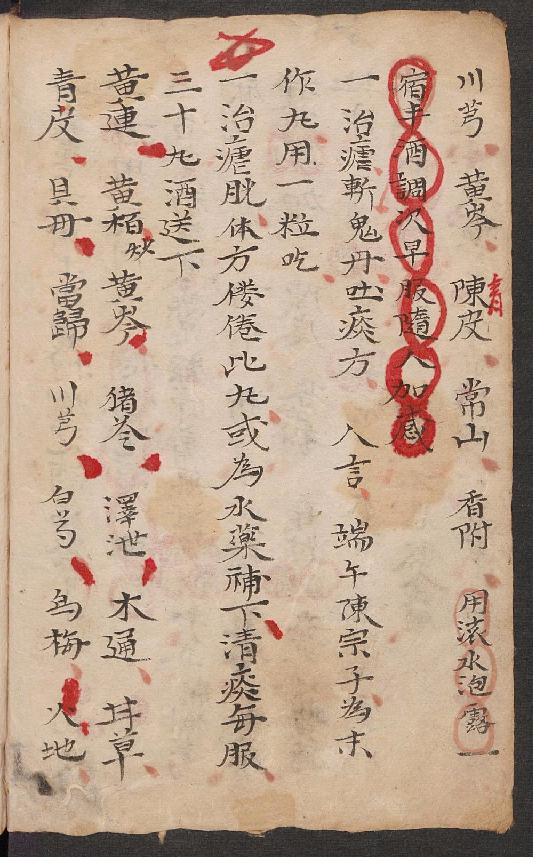 川芎 黃岑 陳皮 常山 香附 用滚水泡露一
青
宿丰酒調次早服隨人加咸
一治瘧斬鬼丹吐痰方 人言 端午陳宗子為末
作九用一粒吃
一治瘧脱体方倦此九或為水藥補下清痰每服
三十九酒送下
黄連 黄栢炒 黄岑 猪苓 澤泄 木通 甘草
青皮 貝母 當歸 川芎 白芍 烏梅 火地